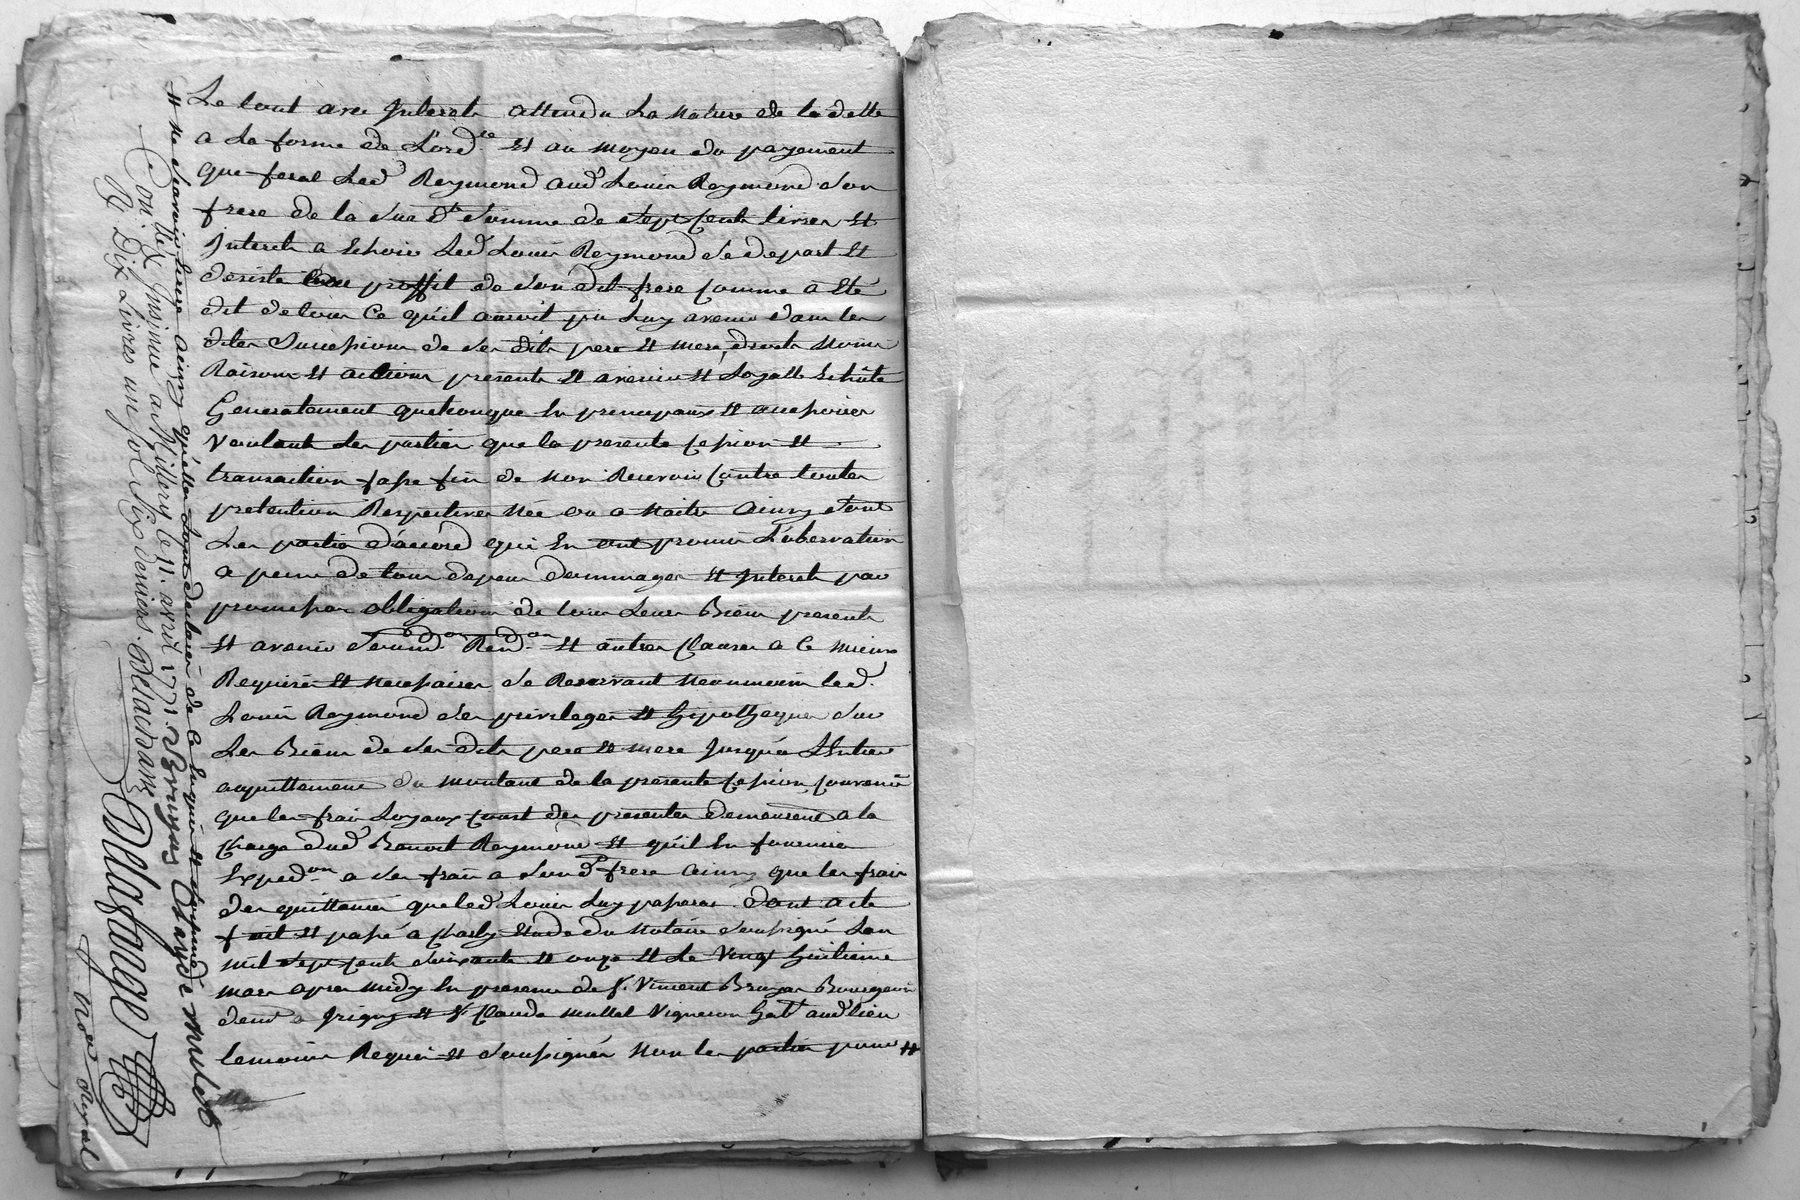 Le tout avec Interets attendu La Nature de la dette
a la forme de L'ord.ce Et au moyen du payement
que feral Led Reymond aud Louis Reymond Son
frere de la Sus d.te Somme de Sept Cents Livres Et
Interets a Echoir Led Louis Reymond Se depart Et
desiste au proffit de Son dit frere Comme a Eté
dit de tous Ce qu'il auroit pu Luy avenir dans les
dites Successions de Ses dits pere Et mere, droits Noms
Raisons Et actions presents Et avenir Et Loyalle Echûte
Generalement quelconque En principaux Et accessoires
Voulant Les parties que la presente Cession Et
transaction fasse fin de Non Recevoir Contre toutes
pretentions Respectives Née ou a Naitre Ainsy Sont
Les parties d'accord qui En ont promis L'obervation
a peine de tous depens dommages Et Interets par
promesses obligations de tous Leurs Biens presents
Et avenir Soumd.on Rend.on Et autres Clauses a Ce mieux
Requises Et Necessaires Se Reservant Neanmoins led.
Louis Reymond Ses privileges Et hipotheques Sur
Les Biens de Ses dits pere Et mere Jusqu'a L'Entier
acquittement du montant de la presente Cession, Convenu
que les frais Loyaux Coust des presentes demeurent a la
Charge dud Benoit Reymond Et qu'il En fournira
Exped.on a Ses frais a Son d. frere Ainsy que les frais
des quittances que led Louis Luy passera. Dont acte
fait Et passé a Charly Etude du Notaire Soussigné L'an
mil Sept Cents Soixante Et onze Et Le Vingt huitieme
mars apres midy En presence de S. Vincent Bruyas Bourgeois
dem.t a Irigny Et S. Claude Mullet Vigneron hab.t aud lieu
temoins Requis Et Soussignés Non les parties pour #
# Ne Scavoir Ecrire Ainsy qu'elles L'ont declaré de Ce Enquis Et
Bruyas Claude mulet
Con.llé Quinzaine a Millery le 11. avril 1771.
R. Dix Livres un sol Six deniers.
Delafarge
N.re Royal